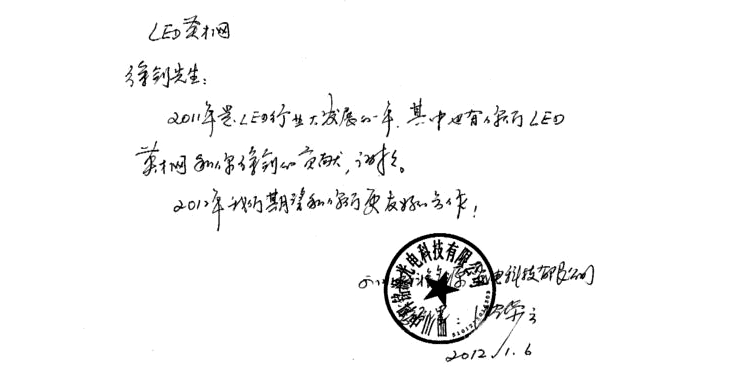 LED英才网
徐剑先生:
2011年是LED行业大发展的一年,其中也有你们LED
英才网和你徐剑的贡献,谢您。
2012年我们期望和你们更友好的合作!
光电科技有限公司
电科技有限公司
2012.1.6